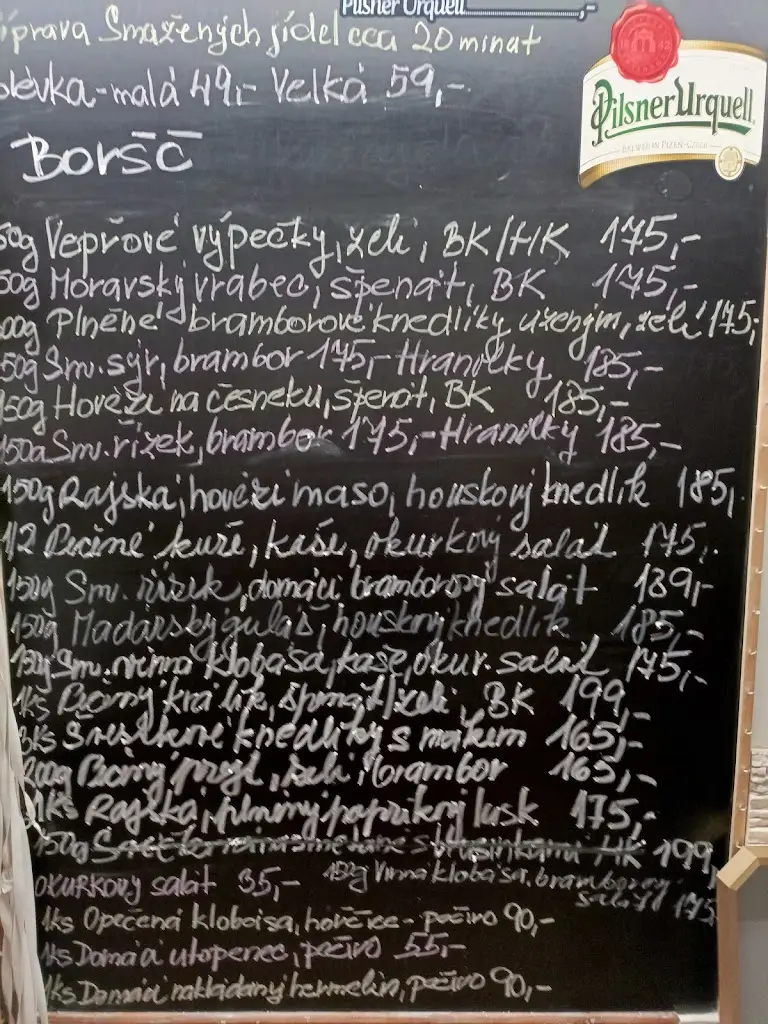 Pilsner Urquell
íprava Smažených jídel cca 20 minut
olévka-malá 49,- Velká 59,-
Pilsner Urquell
Boršč
50g Vepřové výpečky, zelí, BK/HK 175,-
50g Moravský vrabec, špenát, BK 175,-
00g Plněné bramborové knedlíky uzeným, zelí 175,-
50g Sm. sýr, brambor 175,- Hranolky 185,-
150g Hovězí na česneku, špenát, BK 185,-
150g Sm. řízek, brambor 175,- Hranolky 185,-
150g Rajská, hovězí maso, houskový knedlík 185,
1/2 Pečené kuře, kaše, okurkový salát 175,-
150g Sm. řízek, domácí bramborový salát 189,-
150g Maďarský guláš, houskový knedlík 185,-
150g Sm. vinná klobása, kaše, okur. salát 175,-
1ks králík, špenát/zelí, BK 199,-
3ks Švestkové knedlíky s mákem 165,-
200g zelí, brambor 165,-
1ks Rajská, plněný paprikový lusk 175,-
150g smetaně s brusinkami HK 199,
OKURKOVÝ salát 35,-
150g Vinná klobása, bramborový
salát 175
1ks Opečená klobása, hořčice - pečivo 90,-
1ks Domácí utopenec, pečivo 55,-
1ks Domácí nakládaný hermelín, pečivo 90,-